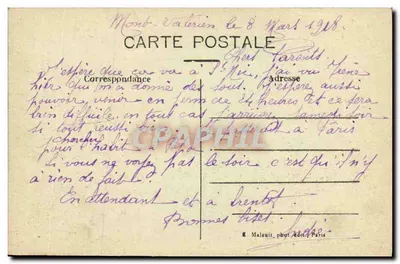 Mont-Valérien le 8 Mars 1918.
CARTE POSTALE
Chers Parents
Correspondance
Adresse
J'espère que ça va à J'ai vu Irène
hier qui m'a donné de J'espère aussi
pouvoir venir en perm de 24 heures et ce sera
très difficile en tout cas j'arriverai Samedi soir
si tout réussi à Paris
chercher
pour habit
si vous ne voyez pas le soir c'est qu'il n'y
a rien de fait.
En attendant et à bientôt
Bonnes bises
CPARAMA
Malcuit, phot. édit. Paris